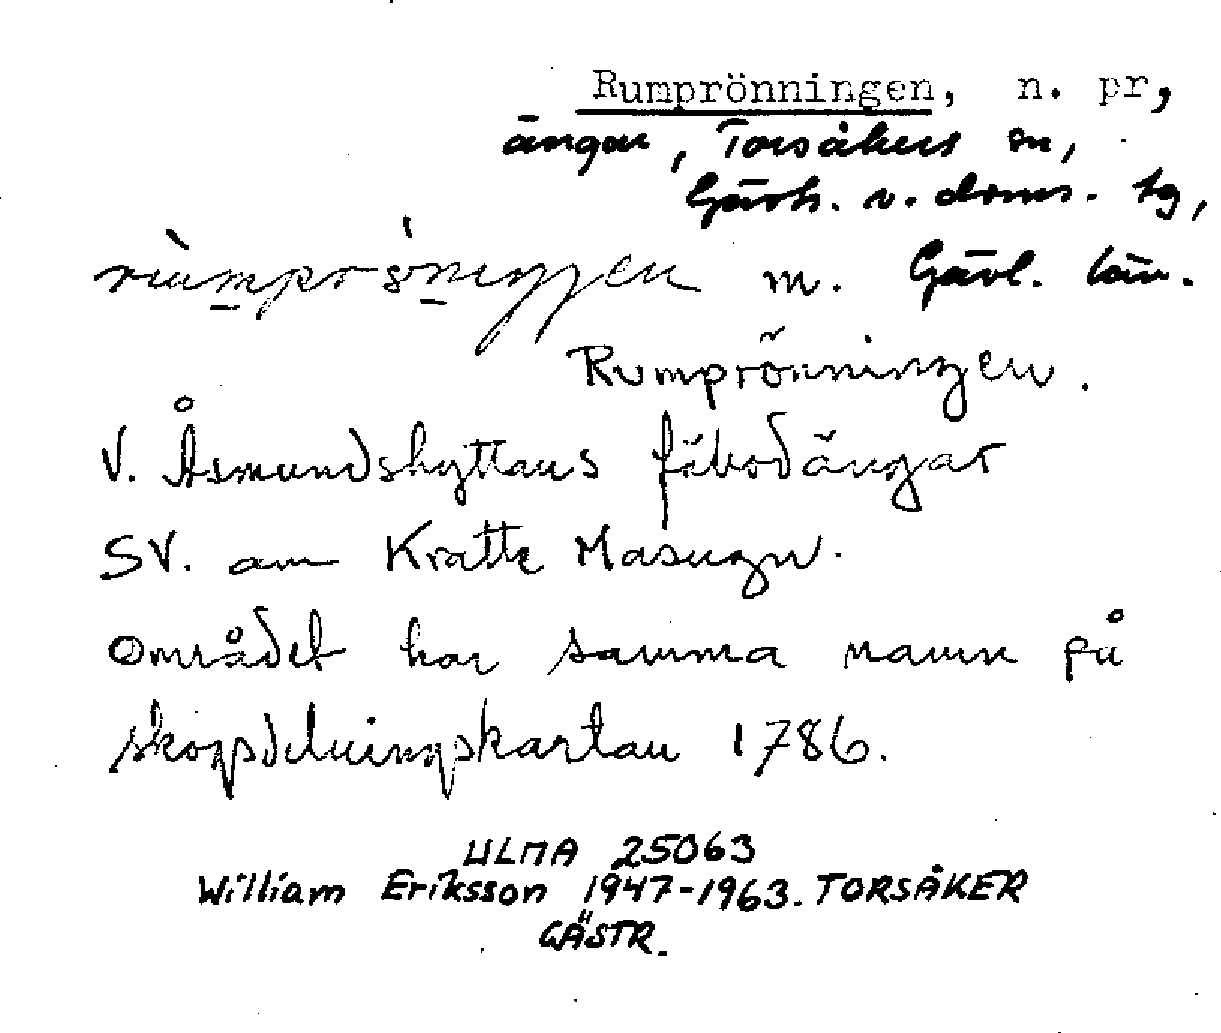 Rumprönningen, n. pr,
ängar, Torsåkers sn,
Gävb. v. doms. tg,
m. Gävl. län.
Rumprönningen.
V. Åsmundshyttans fäbodängar
SV. om Kratte Masugn.
Området har samma namn på
skogsdelningskartan 1786.
ULMA 25063
William Eriksson 1947-1963. TORSÅKER
GÄSTR.